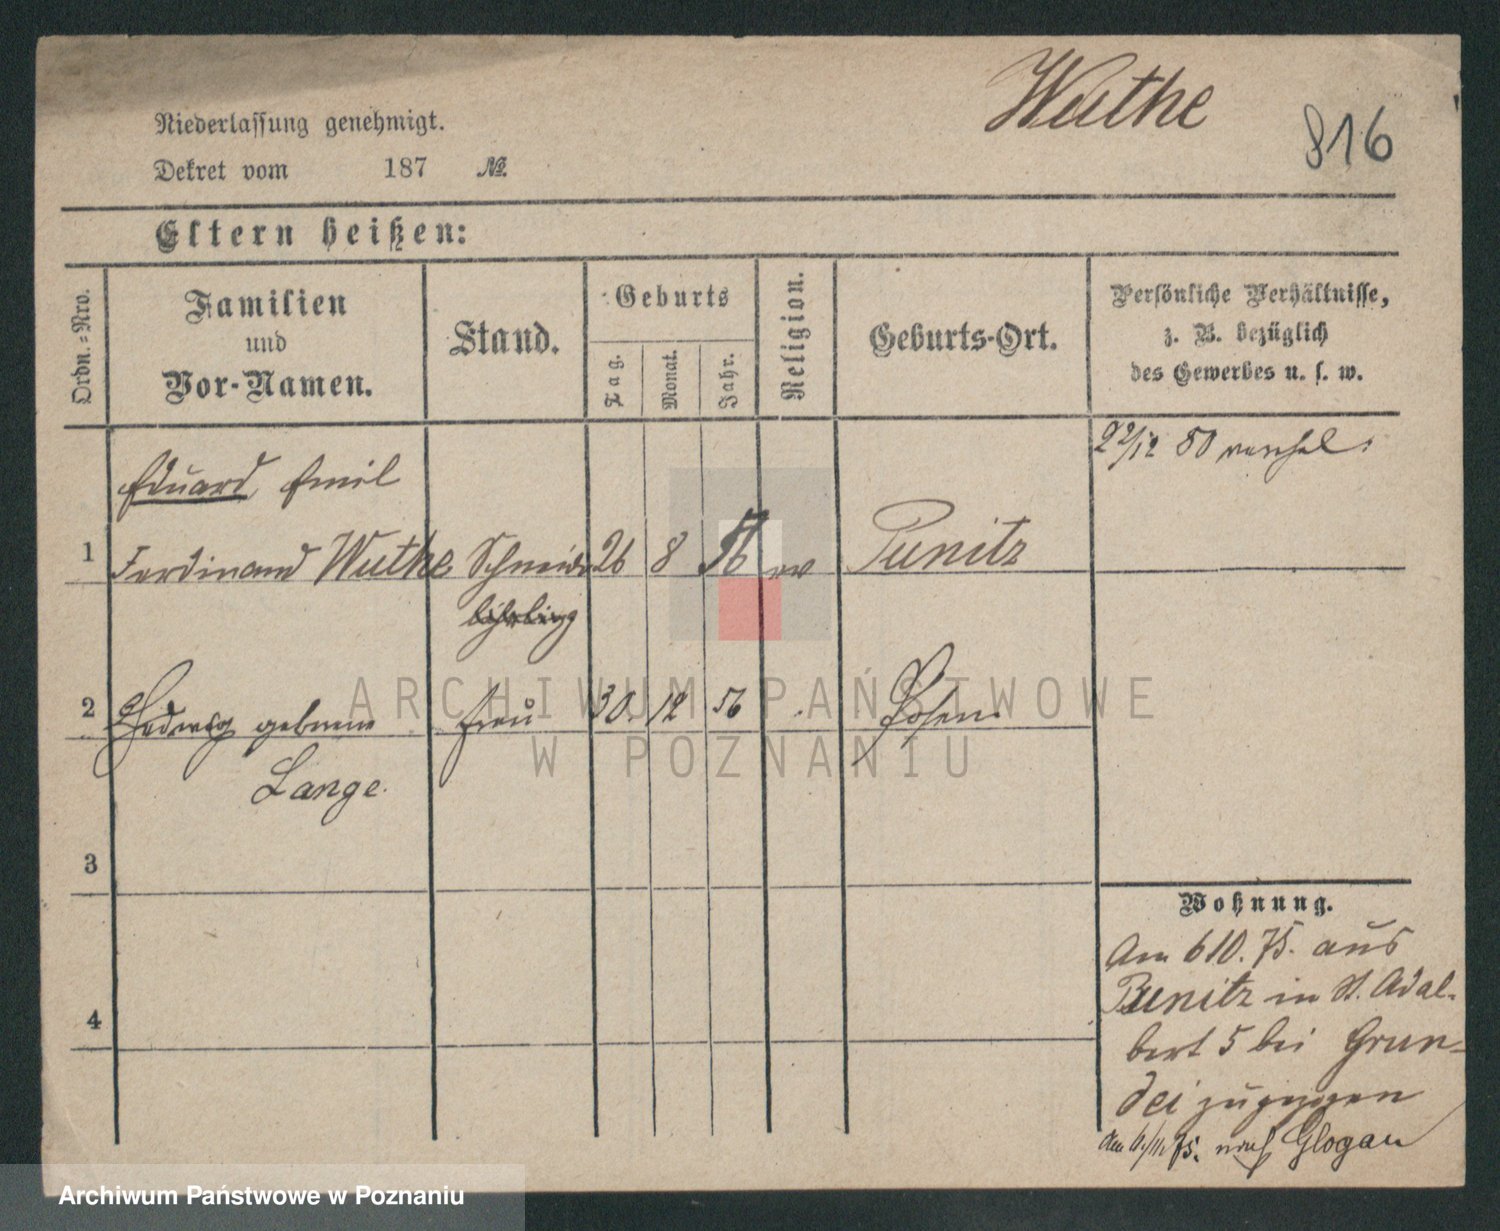 Wuthe
816
Niederlassung genehmigt.
Dekret vom 187 №
Eltern heißen:
Ordn.=Nro.
Familien
und
Vor-Namen.
Stand.
Geburts
Tag.
Monat.
Jahr.
Religion.
Geburts-Ort.
Persönliche Verhältnisse,
z. B. bezüglich
des Gewerbes u. s. w.
22/12 80
Eduard Emil
1 Ferdinand Wuthe Schneider 26 8 56 ev Punitz
2 Hedwig geborene Frau 30. 12 56 Posen
Lange.
3
4
Wohnung.
Am 6 10. 75. aus
Punitz in St. Adal-
bert 5 bei Grun-
dei zugezogen
75. nach Glogau
ARCHIWUM PAŃSTWOWE
W POZNANIU
Archiwum Państwowe w Poznaniu